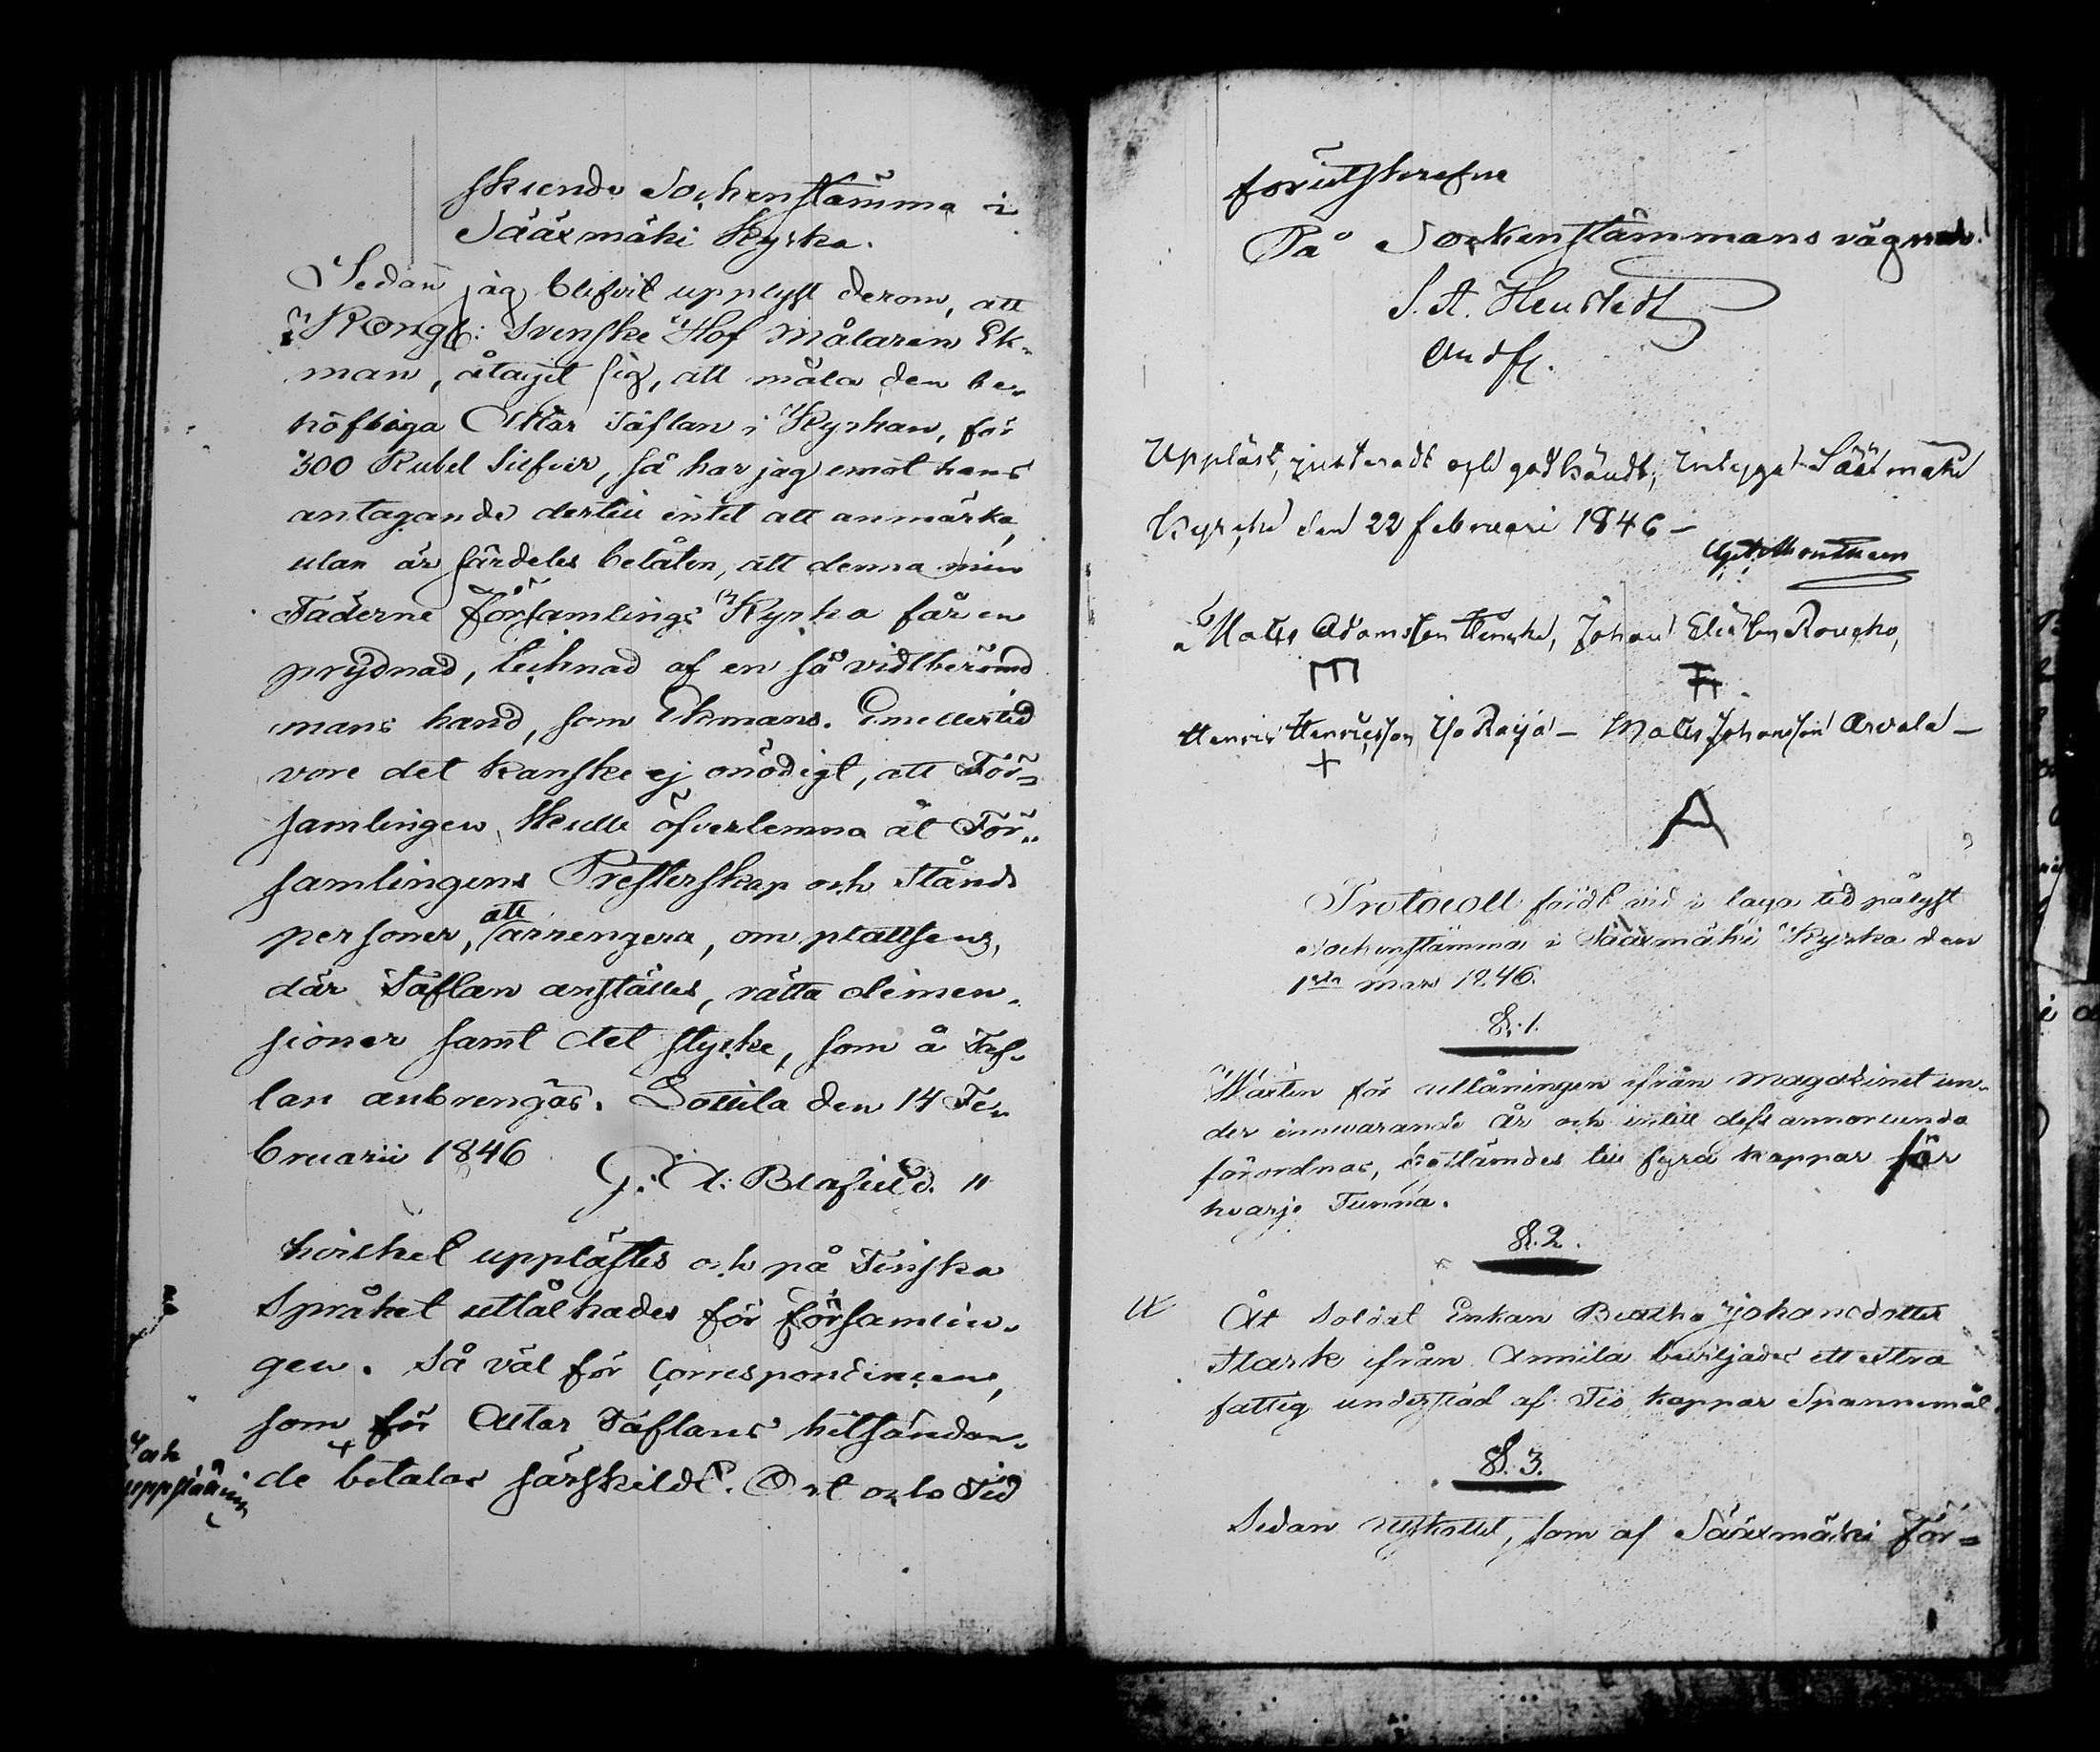 skiende Sockenstämma i
Sääxmäki Kyrka.
Sedan jag blifvit upplyst derom, att
Kongl: Svenske Hof Målaren Ek-
man, åtagit sig, att måla den be-
höfliga Altar Taflan i Kyrkan, för
300 Rubel Silfver, så har jag emot hans
antagande dertill intet att anmärka,
utan är särdeles belåten, att denna min
Fäderne Församlings Kyrka får en
prydnad, tecknad af en så vidtberömd
mans hand, som Ekmans. Emellertid
vore det kanske ej onödigt, att För-
samlingen skulle öfverlemna åt För-
samlingens Presterskap och Stånds
personer, att arrengera, om plattsen,
där Taflan anställes, rätta dimen-
sioner samt det stycke, som å Taf-
lan anbrengas. Sottila den 14 Fe-
bruarii 1846
G: A: Blåfield. "
hvilket upplästes och på Finska
Språket uttålkades för församlin-
gen. Så väl för Correspondencen,
som för Altar Taflans hitsändan-
de + betalas särskildt. Ort och Tid
+ och
uppsättning
förutskrefne
På Sockenstämmans vägnar.
S. A. Heurstedt
Ordf.
Uppläst, justeradt och godkändt, intygat Sääxmäki
Kyrcka den 22 Februari 1846 -
Matts Adamsson Heucka, Johan Ericsson Roucko,
Henric Henricsson Iso Raijo - Matts Johansson Arvola -
Protocoll fördt vid i laga tid pålyst
Sockenstämma i Sääxmäki Kyrka den
1sta Mars 1846.
§.1.
Wäxten för utlåningen ifrån Magazinet un-
der innevarande År och intill dess annorlunda
förordnas, bestämdes till fyra kappar för
hvarje Tunna.
§.2.
Åt Soldat Enkan Beatha Johansdotter
Stark ifrån Annila beviljades ett extra
fattig understöd af Tio kappar Spannemål.
§.3.
Sedan Utskottet, som af Sääxmäki För-